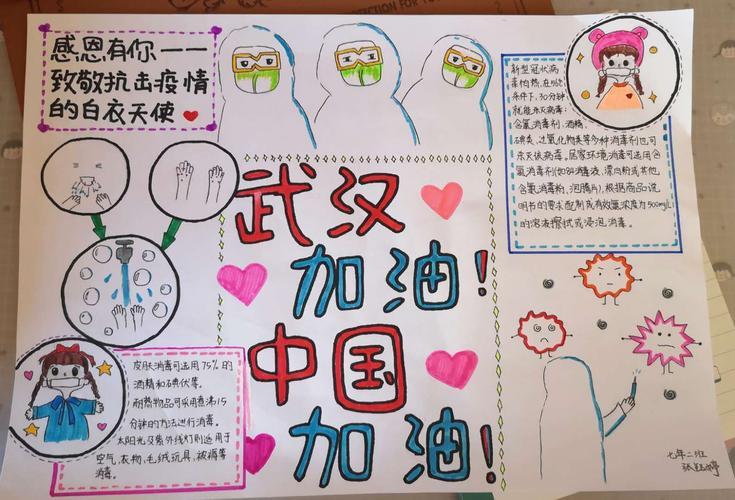 感恩有你——
致敬抗击疫情
的白衣天使
武汉
加油!
中国
加油!
新型冠状病
毒怕热,在56℃
条件下,30分钟
就能杀灭病毒;
含氯消毒剂,酒精,
碘类、过氧化物类等多种消毒剂也可
杀灭该病毒。居家环境消毒可选用含
氯消毒剂(如84消毒液、漂白粉或其他
含氯消毒粉、泡腾片),根据商品说
明书的要求配制成有效氯浓度为500mg/L
的溶液擦拭或浸泡消毒。
皮肤消毒可选用75%的
酒精和碘伏等。
耐热物品可采用煮沸15
分钟的方法进行消毒。
太阳光及紫外线灯则适用于
空气、衣物、毛绒玩具、被褥等
消毒。
七年二班
张 婷